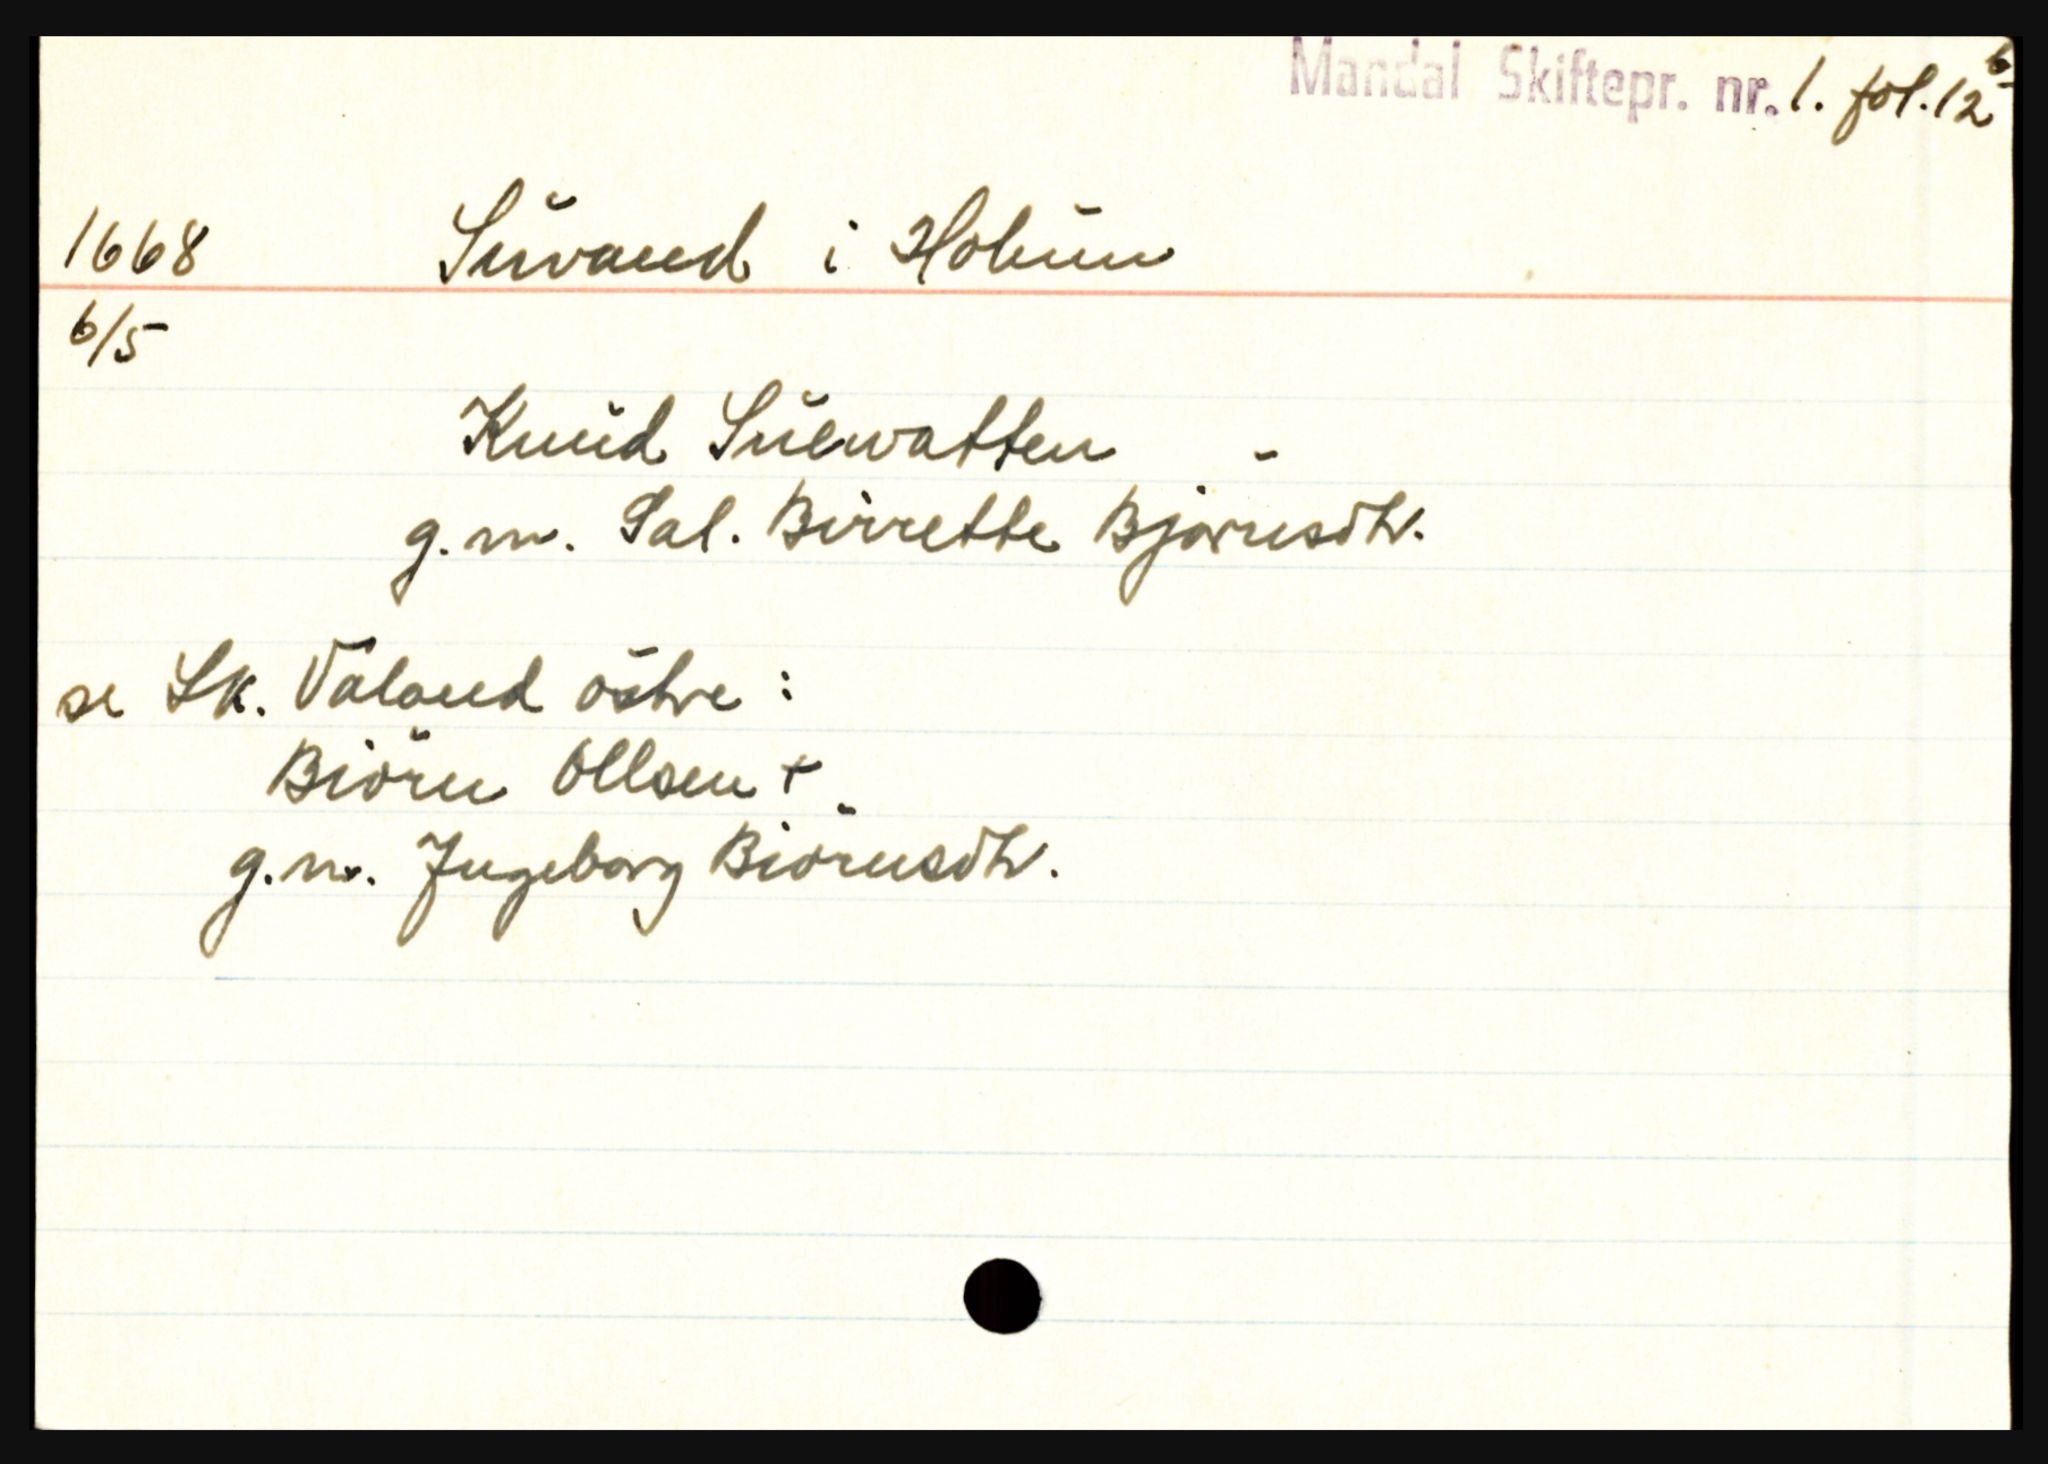 Mandal Skiftepr. nr. 1. fol. 12 b
1668 Suvand i Holum
6/5
Knud Suewatten
g.m. Sal. Birrette Bjørnsdtr.
se Sk. Valand østre :
Biørn Ollsen +
g.m. Jngeborg Biörnsdtr.